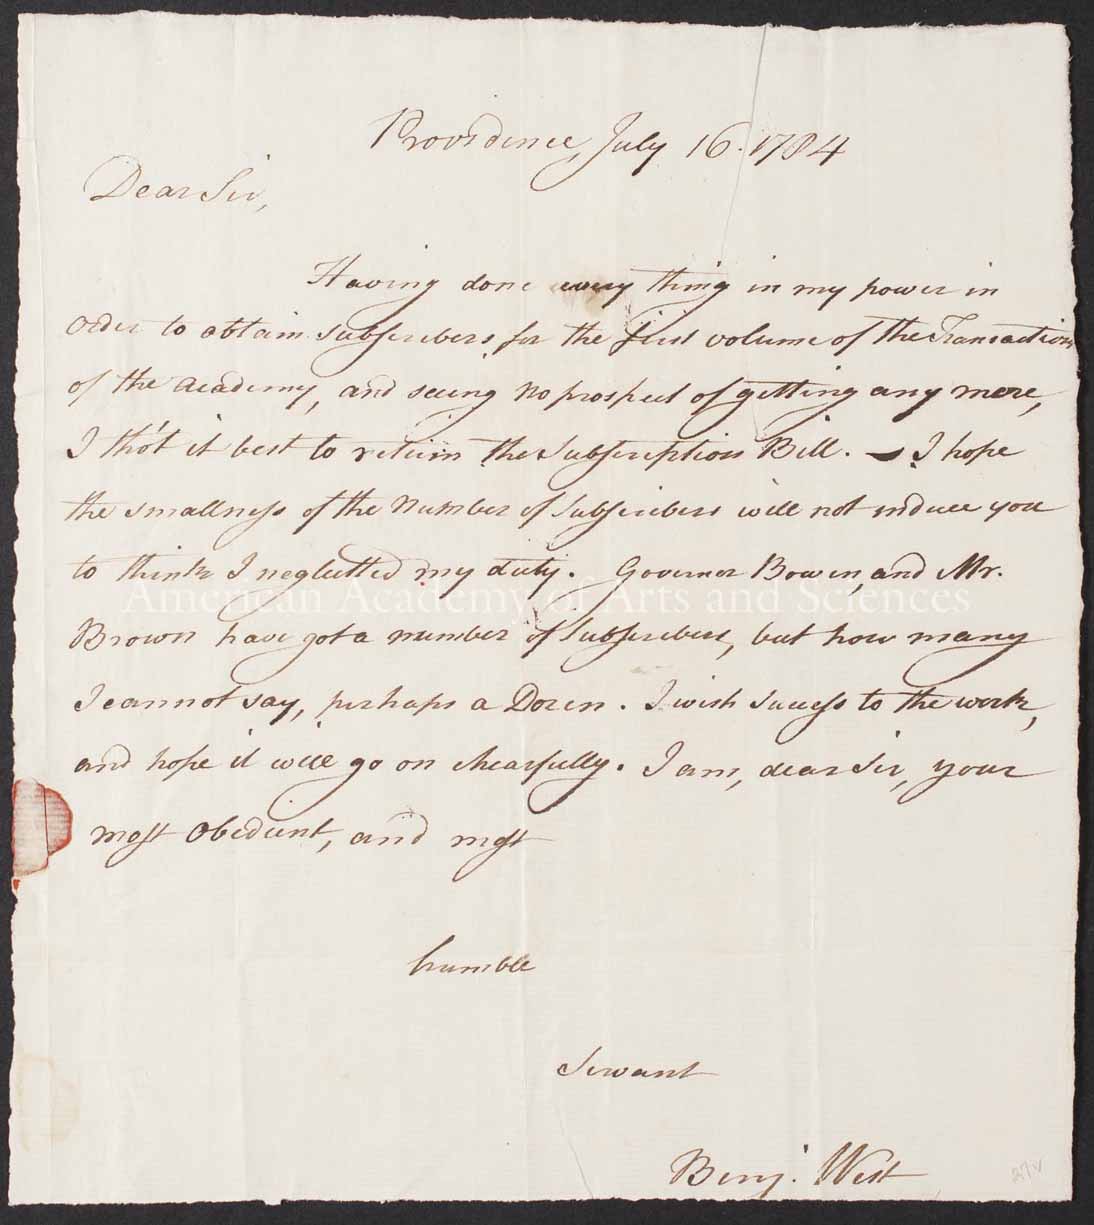 Providence, July 16. 1784
Dear Sir,
Having done every thing in my power in
order to obtain Subscribers for the first volume of the Transactions
of the Academy, and seeing no prospect of getting any more,
I tho't it best to return the Subscription Bill. — I hope
the smallness of the Number of Subscribers will not induce you
to think I neglected my duty. Governor Bowen, and Mr.
American Academy of Arts and Sciences
Brown have got a number of Subscribers, but how many
I cannot say, perhaps a Dozen. I wish success to the work,
and hope it will go on chearfully. I am, dear Sir, your
most Obedient, and most
humble
Servant
Benj. West
27v